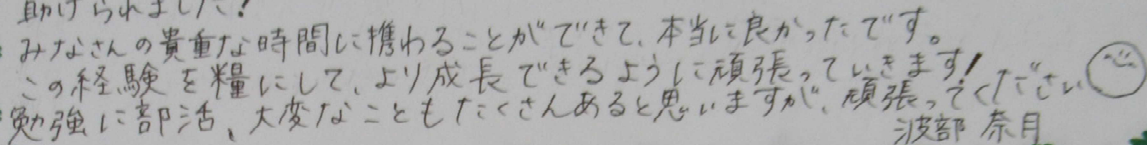 助けられました!
みなさんの貴重な時間に携わることができて、本当に良かったです。
この経験を糧にして、より成長できるように頑張っていきます!
勉強に部活、大変なこともたくさんあると思いますが、頑張ってください
波部 奈月